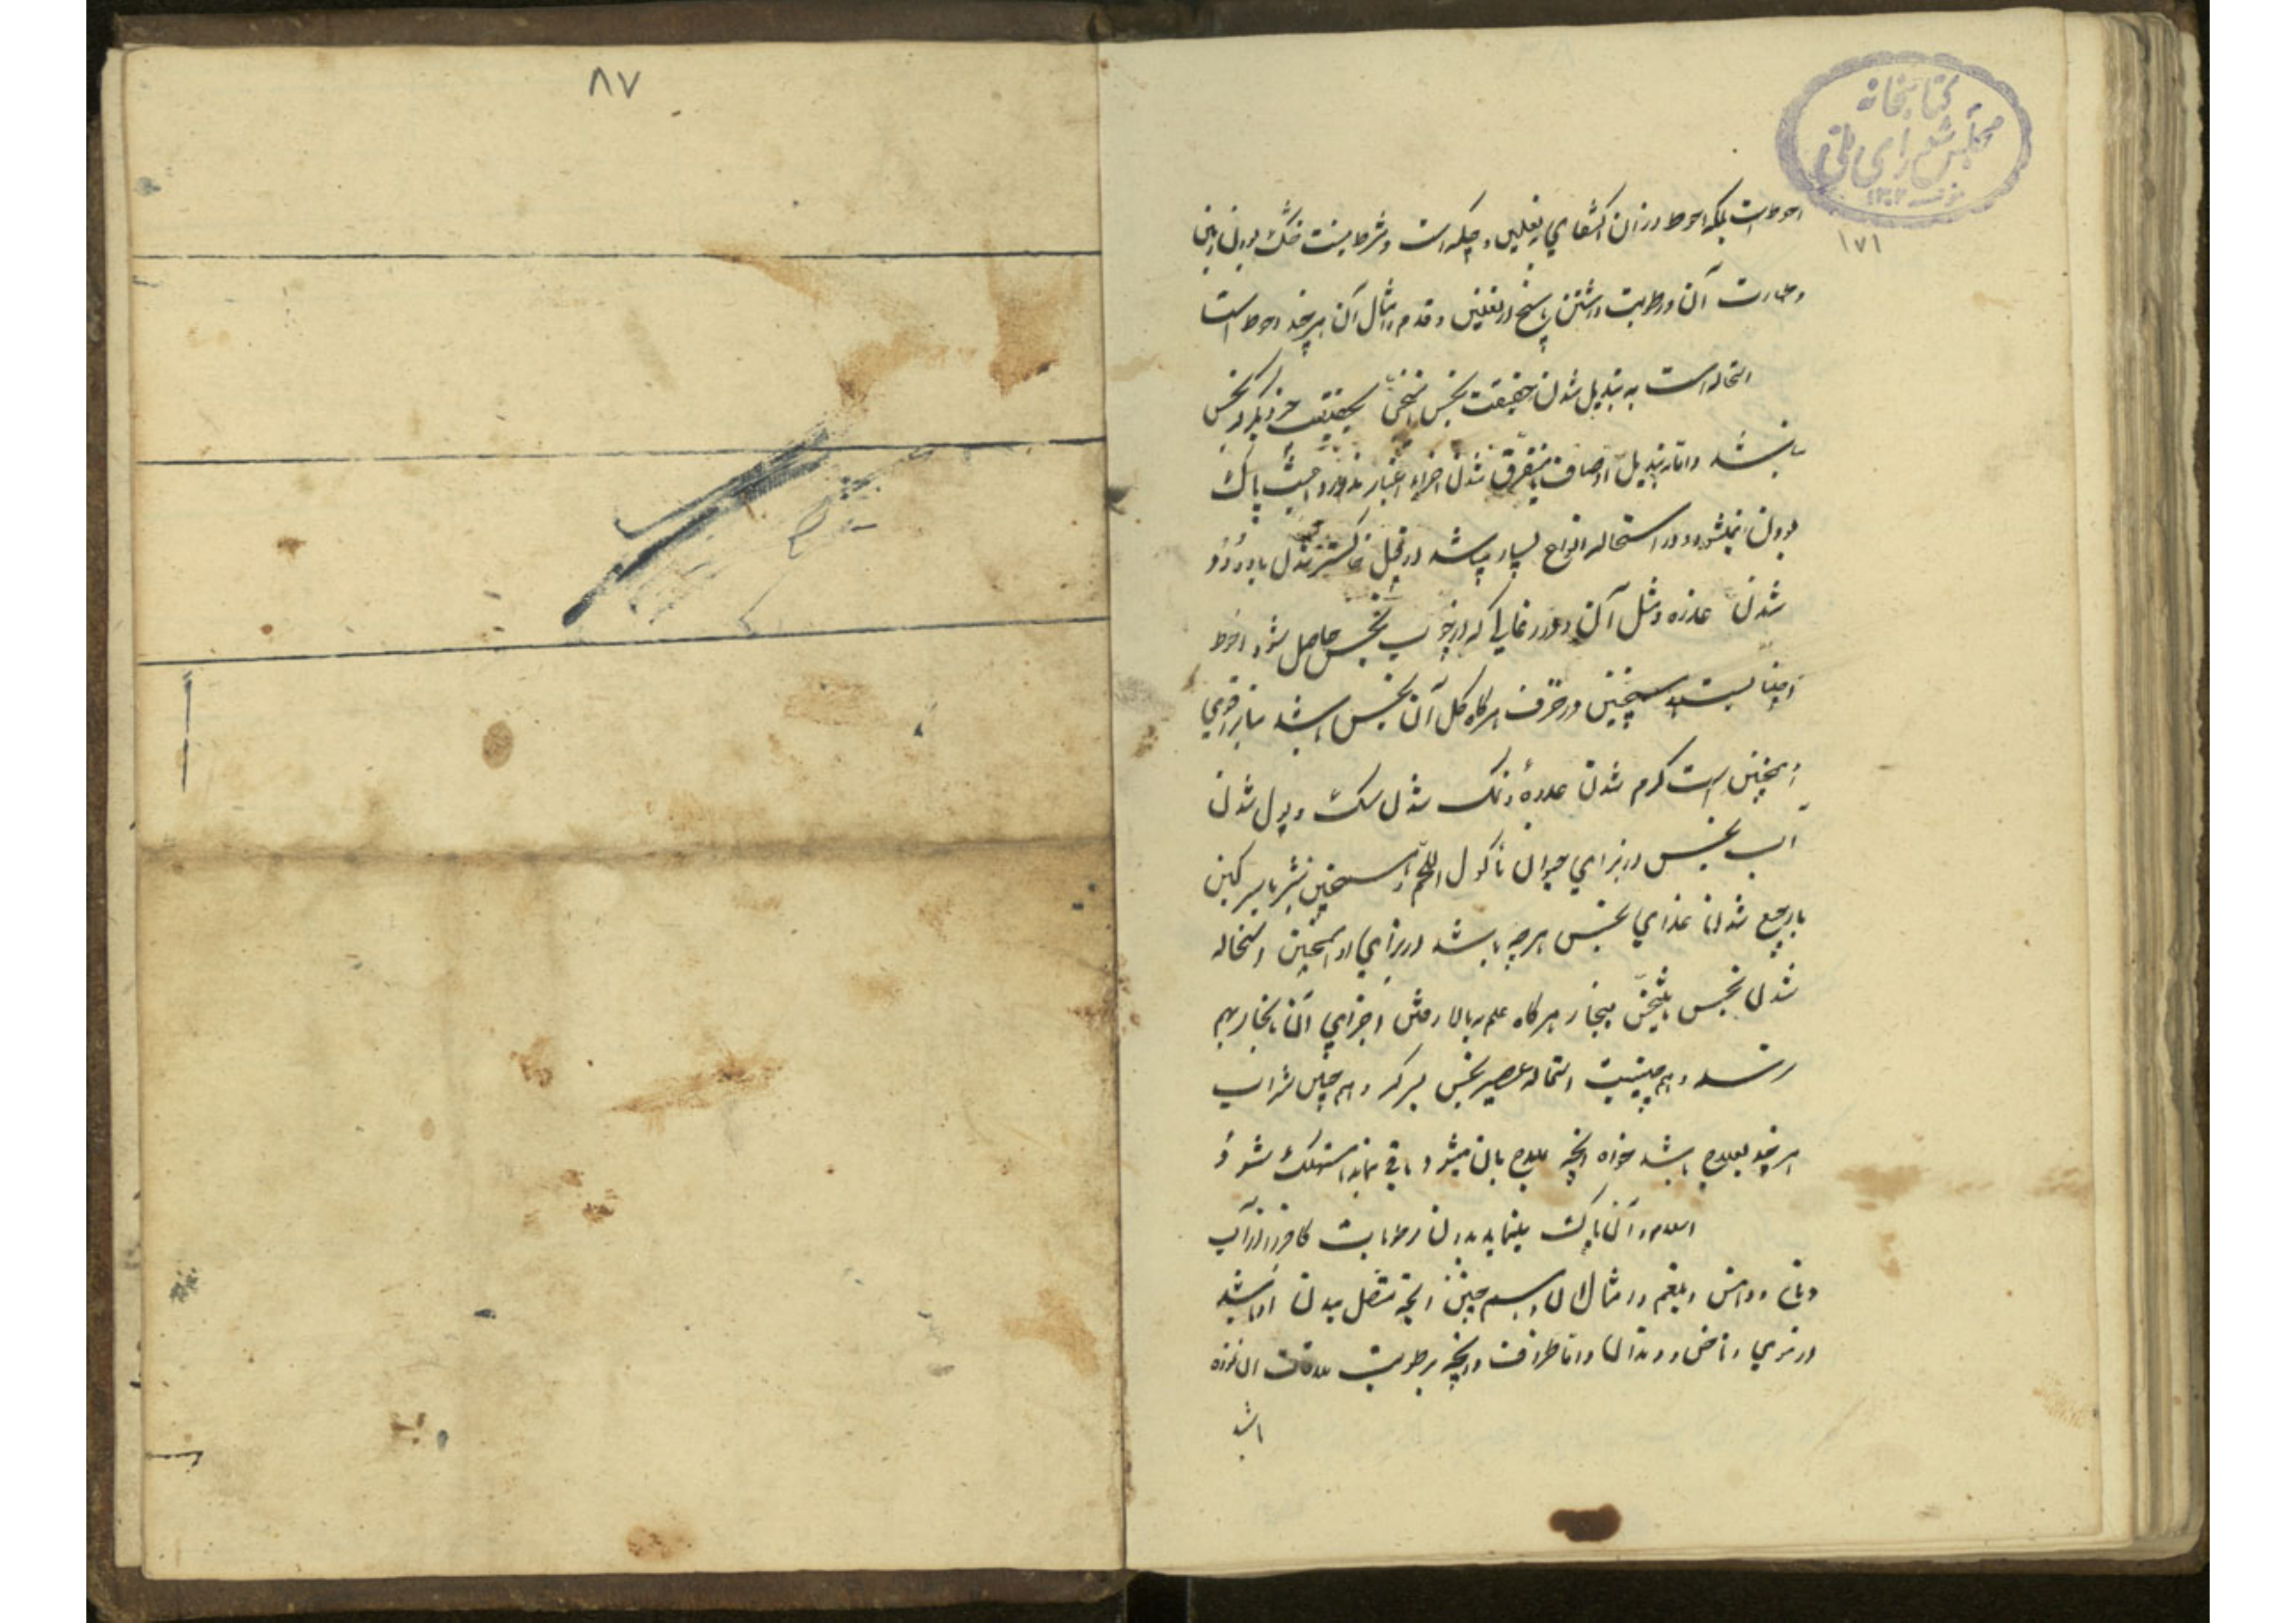 ۸۷
کتابخانه
مجلس شورای ملی
۱۷۱
احوط است بلکه احوط در آن اکتفای بنعلین و چکمه است و شرط نیست خشک بودن زمین
و طهارت آن و رطوبت داشتن پا هنج در نعلین و قدم و امثال آن هر چند احوط است
استحاله است به تبدیل شدن حقیقت نجس بحقیقت چیز دیگر که نجس
نباشد و اما تبدیل اوصاف یا متفرق شدن اجزاء اعتبار ندارد و باعث پاک
بودن نمیشود و در استحاله انواع بسیار میباشد از قبیل خاکستر شدن یا دود
شدن عذره و مثل آن و در زغالی که از چوب نجس حاصل شود احوط
اجتنابست و همچنین در خزف هرگاه گل آن نجس باشد بنا بر اقوی
و همچنین است کرم شدن عذره و نمک شدن سگ و بول شدن
آب نجس در بدن حیوان مأکول اللحم و همچنین شیر یا سرگین
یا رجیع شدن غذای نجس هر چه باشد در بدن او و همچنین استحاله
شدن نجس ببخار هرگاه علم به بالا رفتن اجزای آن با بخار بهم
نرسد و همچنین است استحاله عصیر نجس بسرکه و همچنین شراب
هر چند بعلاج باشد خواه آنچه علاج بآن میشود باقی بماند یا مستهلک شود
اسلام و آن پاک مینماید بدن و رطوبات کافر را از آب
دهان و دماغ و بلغم و امثال آن و همچنین آنچه متصل ببدن او باشد
از موی و ناخن و دندان و اما ظروف و آنچه برطوبت ملاقات آن نموده
باشد